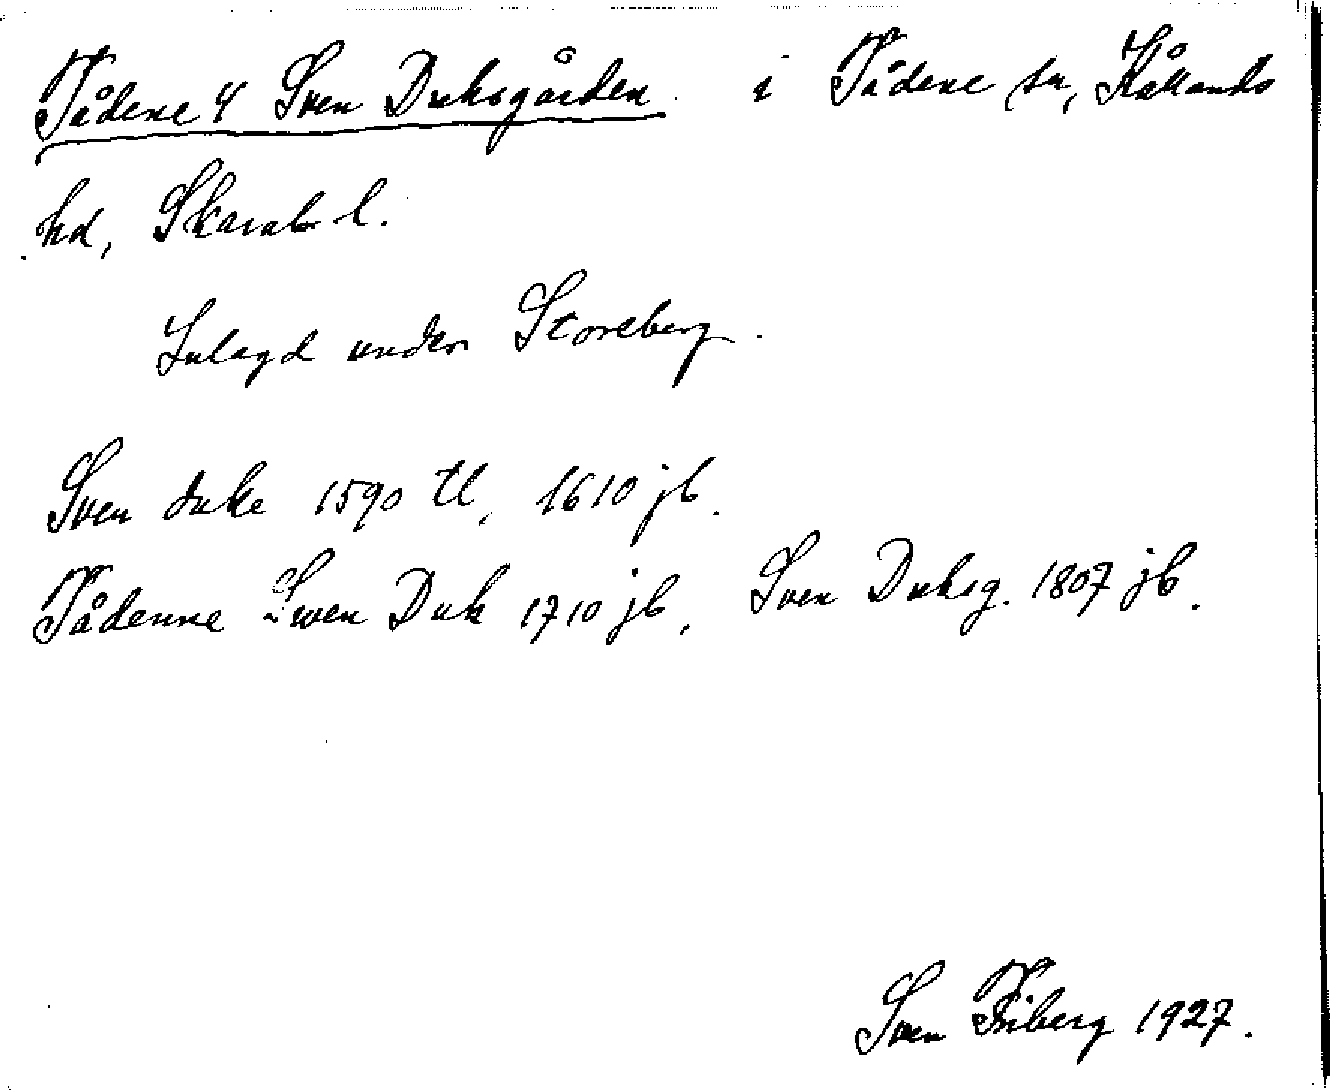 Tådene 4 Sven Duksgården i Tådene sn, Kållands
hd, Skarab. l.
Inlagd under Storeberg.
Sven duke 1590 tl, 1610 jb.
Tådenne Swen Duk 1710 jb, Sven Duksg. 1807 jb.
Sven Friberg 1927.